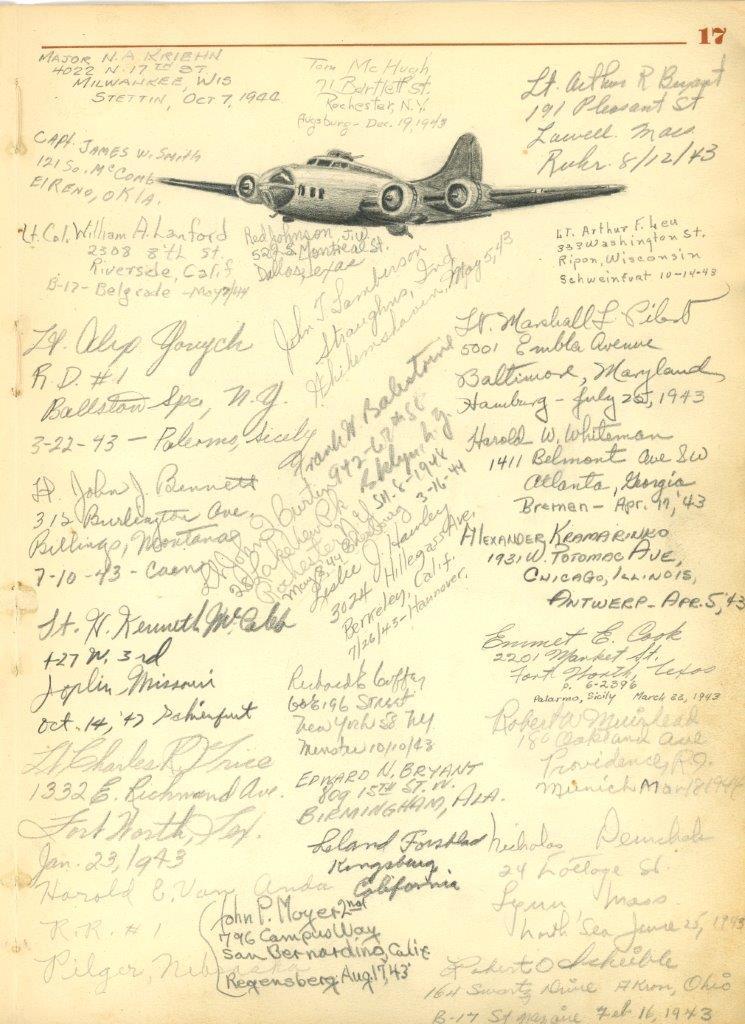 17
MAJOR N. A. KRIEHN
4022 N. 17TH ST
MILWAUKEE, WIS
STETTIN, OCT 7, 1944
Tom McHugh
71 Bartlett St.
Rochester, N.Y.
Augsburg - Dec. 19, 1943
Lt. Arthur R Bryant
191 Pleasant St
Lowell Mass
Ruhr. 8/12/43
CAPT. JAMES W. SMITH
121 SO. McCOMB
EL RENO, OKLA.
Lt. Col. William A. Lanford
2308 8th St.
Riverside, Calif
B-17 - Belgrade -
Red Johnson, J.W.
522 S. Montreal St.
Dallas, Texas
LT. Arthur F. Leu
333 Washington St.
Ripon, Wisconsin
Schweinfurt 10-14-43
John T. Lamberson
Straughns, Ind
Wilhelmshaven, May 5, 43
Lt. Alex
R.D. #1
Ballston Spa, N.Y.
3-22-43 - Palermo, Sicily
Lt. Marshall L
5001 Embla Avenue
Baltimore, Maryland
Hamburg - July 25, 1943
Frank W.
942-62
Bklyn N.Y.
Harold W. Whiteman
1411 Belmont Ave SW
Atlanta, Georgia
Bremen - Apr. 17, '43
Lt. John J. Bennett
312 Burlington Ave.
Billings, Montana
7-10-43 - Caen
Lt. John J.
Rochester
Leslie J.
3024 Hillegass Ave,
Berkeley, Calif.
7/26/43 - Hannover.
ALEXANDER KRAMARINKO
1931 W. POTOMAC AVE,
CHICAGO, ILLINOIS,
ANTWERP - APR. 5, '43
Lt. H. Kenneth McCaleb
W. 3rd
Joplin Missouri
Oct. 14,
Emmet E. Cook
2201 Market St.
Fort Worth, Texas
P. 6-2596
Palarmo, Sicily March 22, 1943
Richard E
60 E 196 Street
New York 58 NY
10/10/43
Robert W Muirhead
186 Oakland Ave
Providence, R.I.
Munich Mar 18 1944
Lt Charles R. Price
1332 E. Richmond Ave.
Fort Worth, Tex.
Jan. 23, 1943
EDWARD N. BRYANT
809 15TH ST. W.
BIRMINGHAM, ALA.
Leland
Kingsburg
California
Nicholas
24
Lynn Mass
North Sea June 25, 1943
Harold E. Van Anda
R.R. #1
Pilger, Nebraska
John P. Moyer 2nd
796 Campus Way
San Bernardino, Calif.
Regensberg Aug 17, 43
Robert O
164 Drive Akron, Ohio
B-17 St Feb 16, 1943